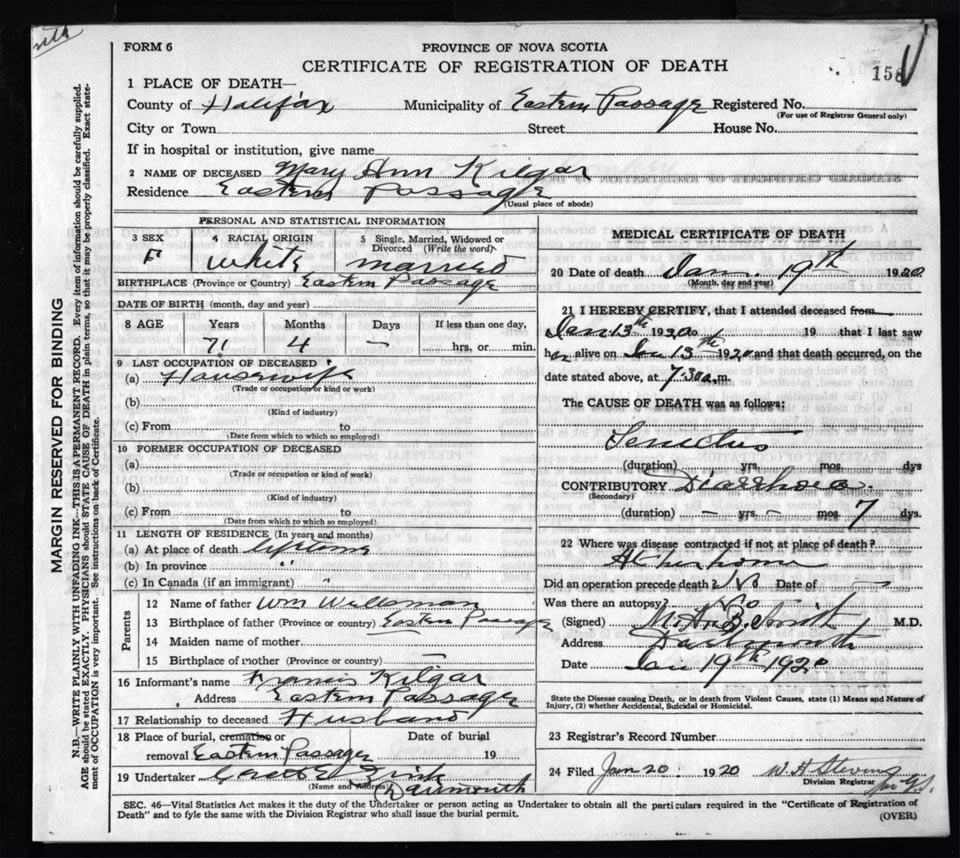 FORM 6
PROVINCE OF NOVA SCOTIA
CERTIFICATE OF REGISTRATION OF DEATH
158
1 PLACE OF DEATH—
County of Halifax Municipality of Eastern Passage Registered No.
(For use of Registrar General only)
City or Town Street House No.
If in hospital or institution, give name
2 NAME OF DECEASED Mary Ann Kilgar
Residence Eastern Passage
(Usual place of abode)
PERSONAL AND STATISTICAL INFORMATION
3 SEX
F
4 RACIAL ORIGIN
White
5 Single, Married, Widowed or
Divorced (Write the word)
married
BIRTHPLACE (Province or Country) Eastern Passage
DATE OF BIRTH (month, day and year)
8 AGE Years Months Days If less than one day,
71 4 — hrs. or min.
9 LAST OCCUPATION OF DECEASED
(a) Housewife
(Trade or occupation or kind or work)
(b)
(Kind of industry)
(c) From to
(Date from which to which so employed)
10 FORMER OCCUPATION OF DECEASED
(a)
(Trade or occupation or kind of work)
(b)
(Kind of industry)
(c) From to
(Date from which to which so employed)
11 LENGTH OF RESIDENCE (In years and months)
(a) At place of death lifetime
(b) In province "
(c) In Canada (if an immigrant) "
Parents
12 Name of father Wm Willsman
13 Birthplace of father (Province or country) Eastern Passage
14 Maiden name of mother
15 Birthplace of mother (Province or country) —
16 Informant's name Francis Kilgar
Address Eastern Passage
17 Relationship to deceased Husband
18 Place of burial, cremation or Date of burial
removal Eastern Passage 19
19 Undertaker Zink
(Name and Address) Dartmouth
MEDICAL CERTIFICATE OF DEATH
20 Date of death Jan. 19th 1920
(Month, day and year)
21 I HEREBY CERTIFY, that I attended deceased from
Jan 13th 1920 to 19 that I last saw
her alive on Jan 13th 1920 and that death occurred, on the
date stated above, at 7.30 a.m.
The CAUSE OF DEATH was as follows:
Senectus
(duration) yrs. mos. dys
CONTRIBUTORY Diarrhoea
(Secondary)
(duration) — yrs. — mos. 7 dys.
22 Where was disease contracted if not at place of death?
At her home
Did an operation precede death? No Date of —
Was there an autopsy? No
(Signed) Smith M.D.
Address Dartmouth
Date Jan 19th 1920
State the Disease causing Death, or in death from Violent Causes, state (1) Means and Nature of
Injury, (2) whether Accidental, Suicidal or Homicidal.
23 Registrar's Record Number
24 Filed Jan 20 1920 W. H. Stevens
Division Registrar
SEC. 46—Vital Statistics Act makes it the duty of the Undertaker or person acting as Undertaker to obtain all the particulars required in the "Certificate of Registration of
Death" and to fyle the same with the Division Registrar who shall issue the burial permit.
(OVER)
MARGIN RESERVED FOR BINDING
N.B.—WRITE PLAINLY WITH UNFADING INK—THIS IS A PERMANENT RECORD. Every item of information should be carefully supplied.
AGE should be stated EXACTLY. PHYSICIANS should STATE CAUSE OF DEATH in plain terms, so that it may be properly classified. Exact state-
ment of OCCUPATION is very important. See instructions on back of Certificate.